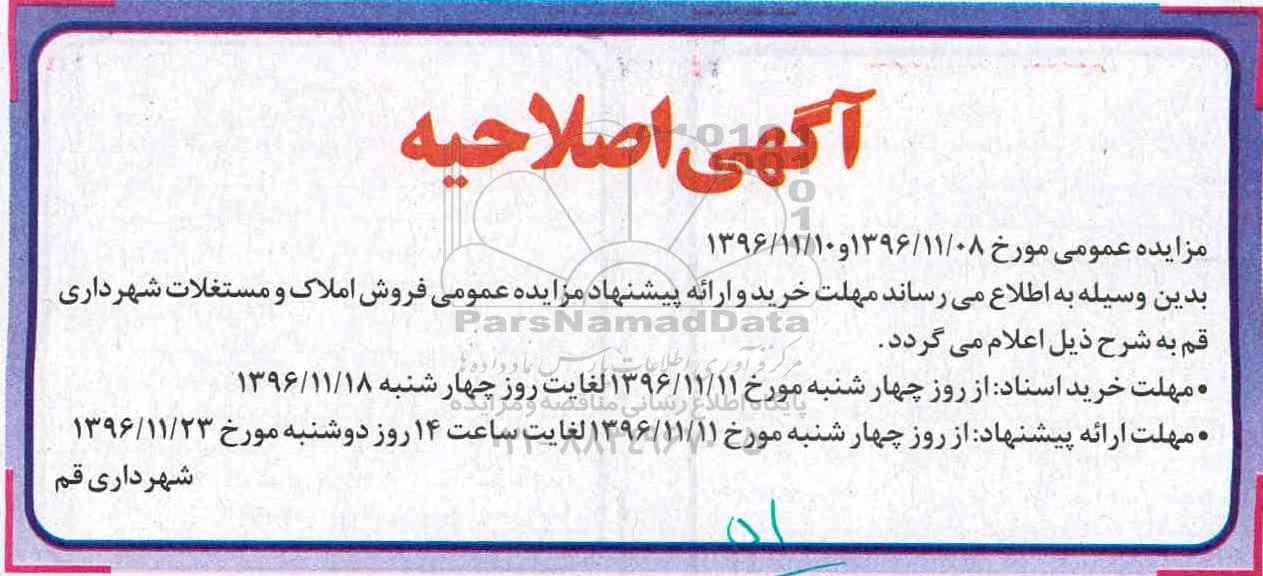 آگهی اصلاحیه
مزایده عمومی مورخ ۱۳۹۶/۱۱/۰۸ و ۱۳۹۶/۱۱/۱۰
بدین وسیله به اطلاع می رساند مهلت خرید و ارائه پیشنهاد مزایده عمومی فروش املاک و مستغلات شهرداری
قم به شرح ذیل اعلام می گردد.
• مهلت خرید اسناد: از روز چهار شنبه مورخ ۱۳۹۶/۱۱/۱۱ لغایت روز چهار شنبه ۱۳۹۶/۱۱/۱۸
• مهلت ارائه پیشنهاد: از روز چهار شنبه مورخ ۱۳۹۶/۱۱/۱۱ لغایت ساعت ۱۴ روز دوشنبه مورخ ۱۳۹۶/۱۱/۲۳
شهرداری قم
ParsNamadData
مرکز فرآوری اطلاعات پارس نماد داده ها
پایگاه اطلاع رسانی مناقصه و مزایده